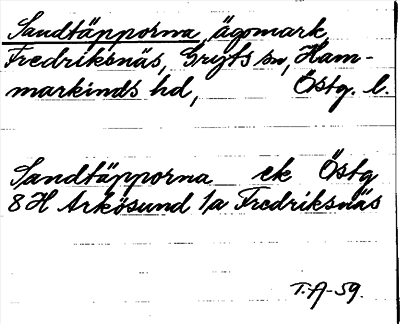 Sandtäpporna, ägomark,
Fredriksnäs, Gryts sn, Ham-
markinds hd, Östg. l.
Sandtäpporna ek Östg
8H Arkösund 1a Fredriksnäs
T.A-59.